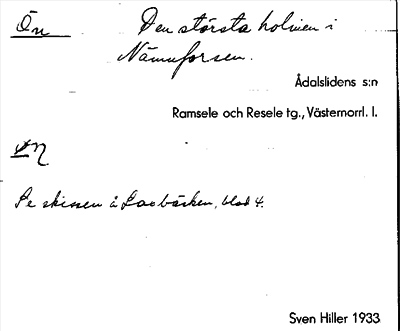 Ön Den största holmen i
Nämnforsen.
Ådalslidens s:n
Ramsele och Resele tg., Västernorrl. l.
Se skissen å Laxbäcken, blad 4.
Sven Hiller 1933